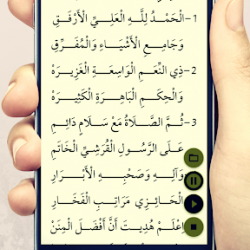 1- الْحَمْدُ لِلَّهِ الْعَلِيِّ الْأَرْفَقِ
وَجَامِعِ الْأَشْيَاءِ وَالْمُفَرِّقِ
2- ذِي النِّعَمِ الْوَاسِعَةِ الْغَزِيرَهْ
وَالْحِكَمِ الْبَاهِرَةِ الْكَثِيرَهْ
3- ثُمَّ الصَّلَاةُ مَعْ سَلَامٍ دَائِمِ
عَلَى الرَّسُولِ الْقُرَشِيِّ الْخَاتَمِ
وَآلِهِ وَصَحْبِهِ الْأَبْرَارِ
الْحَائِزِي مَرَاتِبِ الْفَخَارِ
اِعْلَمْ هُدِيتَ أَنَّ أَفْضَلَ الْمِنَنْ